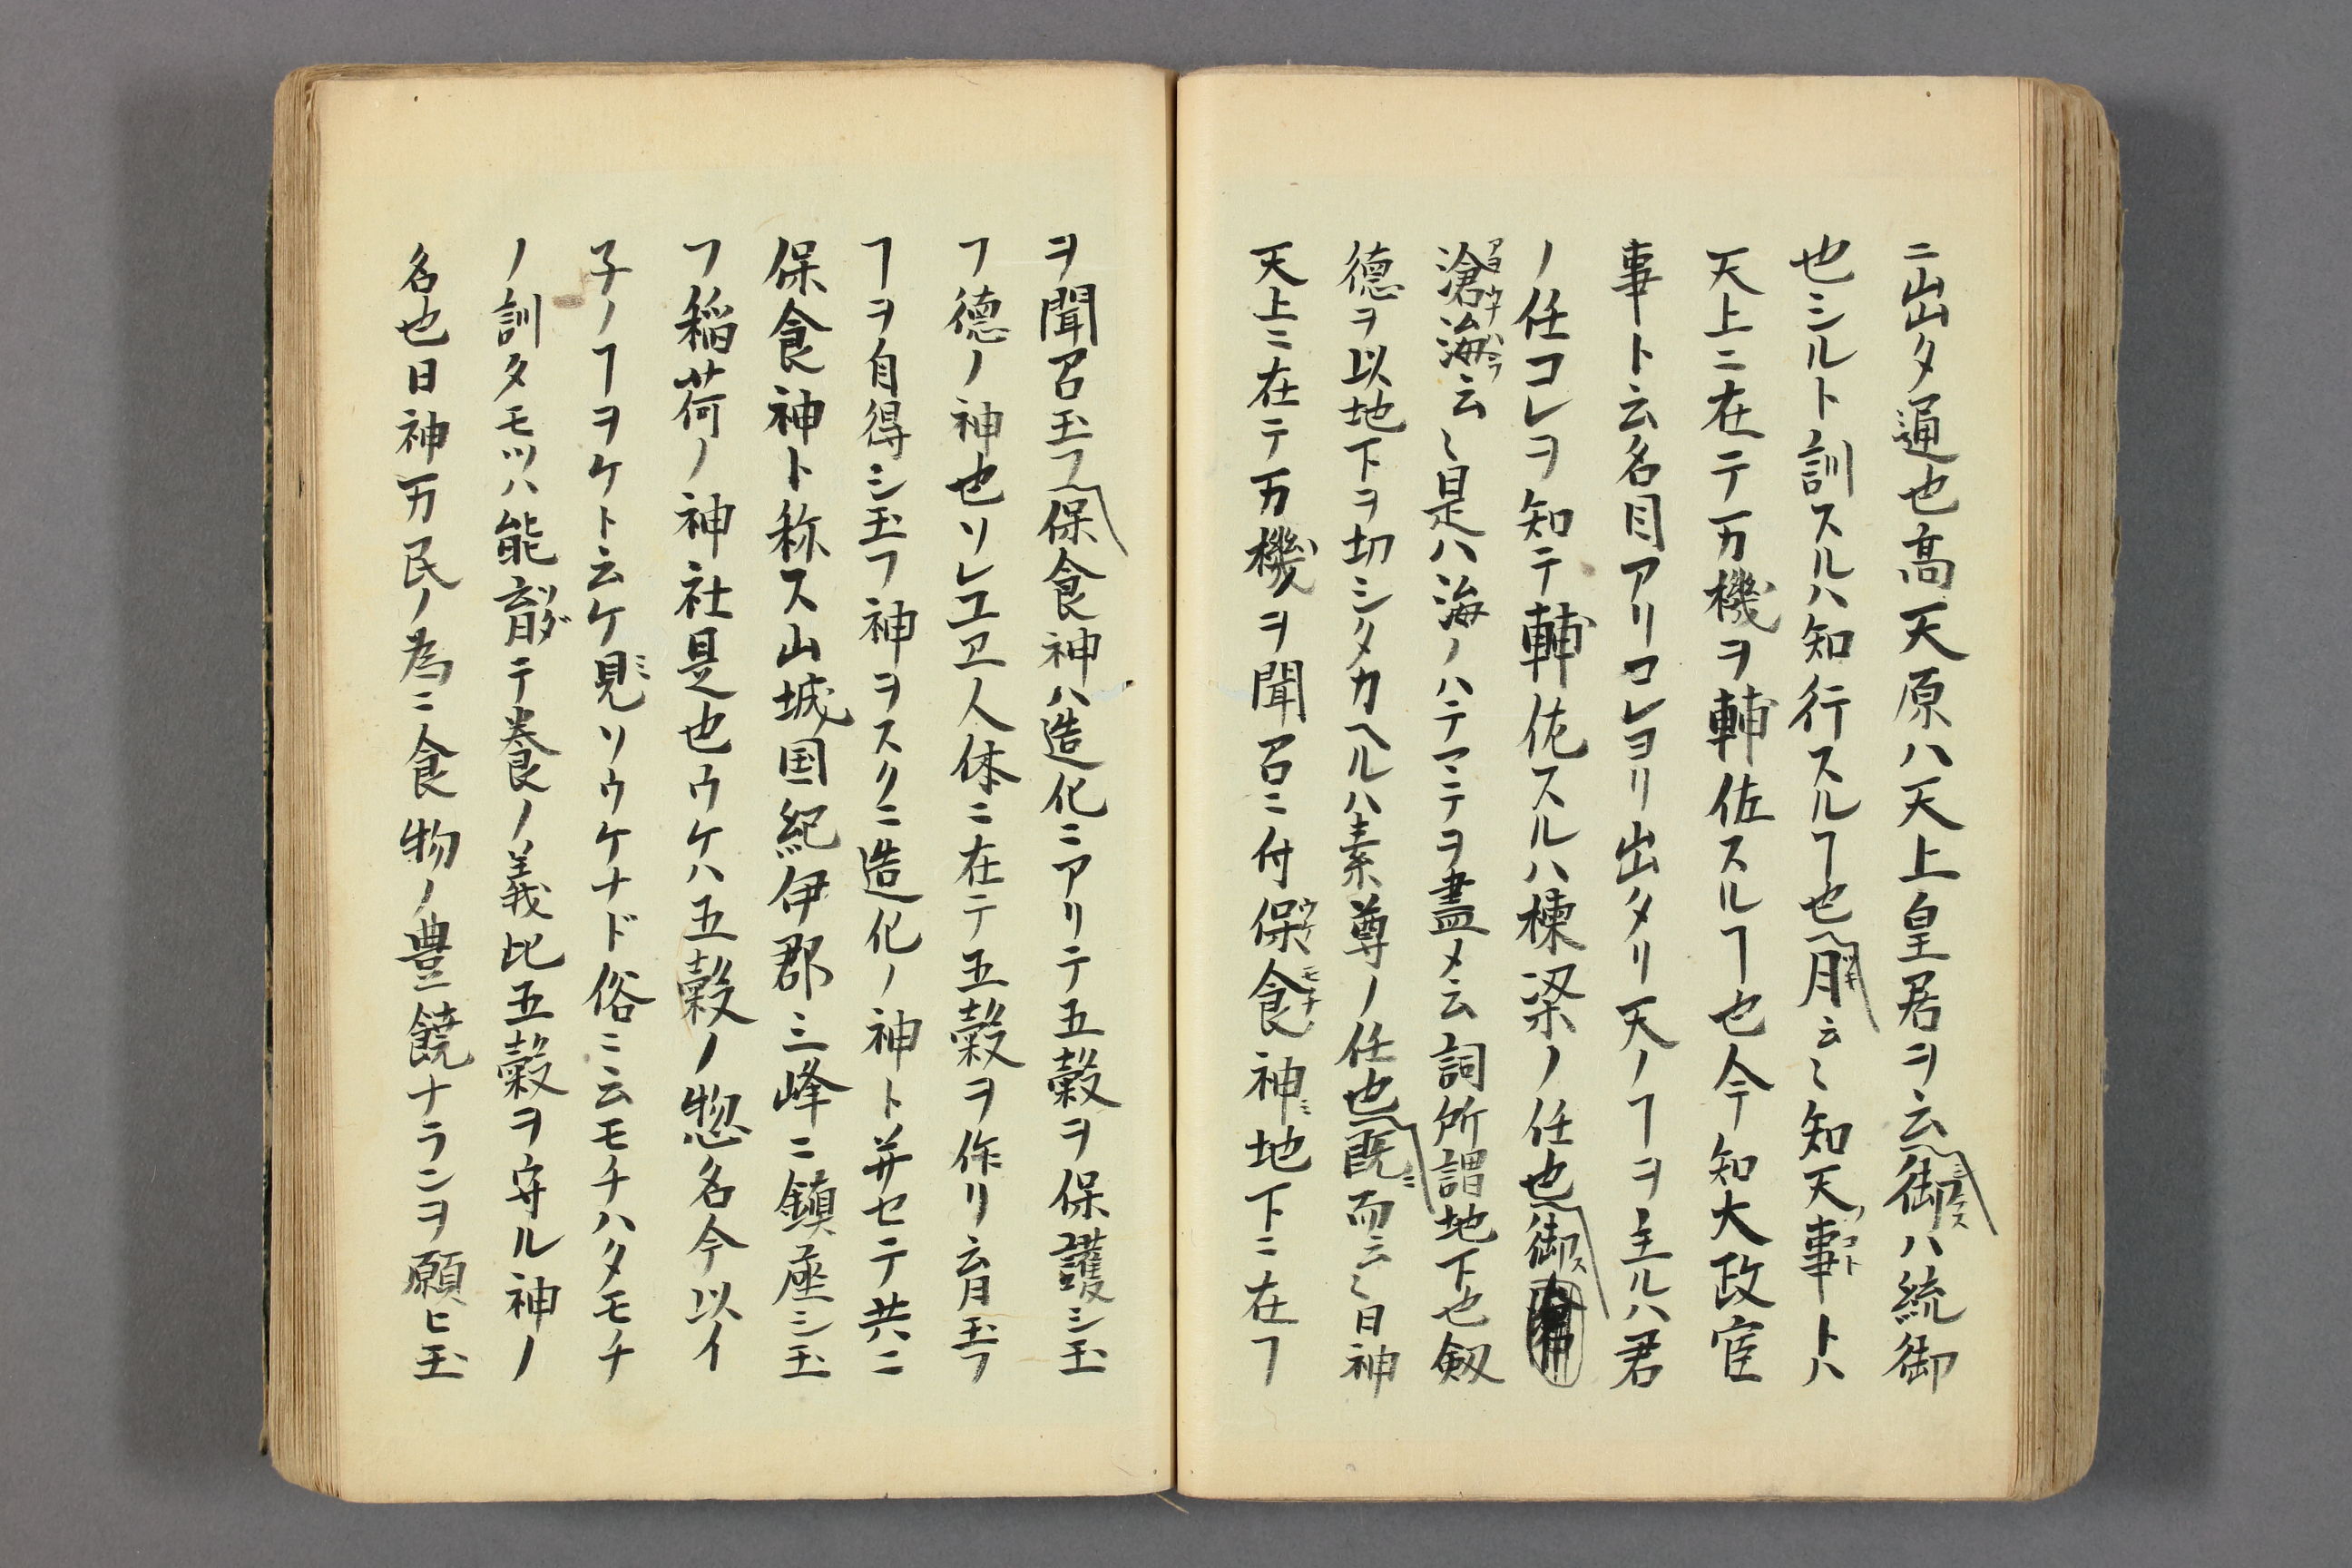 ニ出タ通也高天原ハ天上皇居ヲ云御ハ統御
也シルト訓スルハ知行スルヿ也月云〻知天事トハ
天上ニ在テ万機ヲ輔佐スルヿ也今知大政官
事ト云名目アリコレヨリ出タリ天ノヿヲ主ルハ君
ノ任コレヲ知テ輔佐スルハ棟梁ノ任也御
滄海云〻是ハ海ノハテマテヲ盡メ云詞所謂地下也劔
德ヲ以地下ヲ切シタカヘルハ素尊ノ任也既而云〻日神
天上ニ在テ万機ヲ聞召ニ付保食神地下ニ在ヿ
ヲ聞召玉フ保食神ハ造化ニアリテ五穀ヲ保護シ玉
フ德ノ神也ソレユヱ人体ニ在テ五穀ヲ作リ育玉フ
ヿヲ自得シ玉フ神ヲスクニ造化ノ神ト并セテ共ニ
保食神ト称ス山城国紀伊郡三峰ニ鎮座シ玉
フ稲荷ノ神社是也ウケハ五穀ノ惣名今以イ
子ノヿヲケト云ケ見ソウケナド俗ニ云モチハタモチ
ノ訓タモツハ能育テ養ノ義比五穀ヲ守ル神ノ
名也日神万民ノ為ニ食物ノ豊饒ナランヲ願ヒ玉